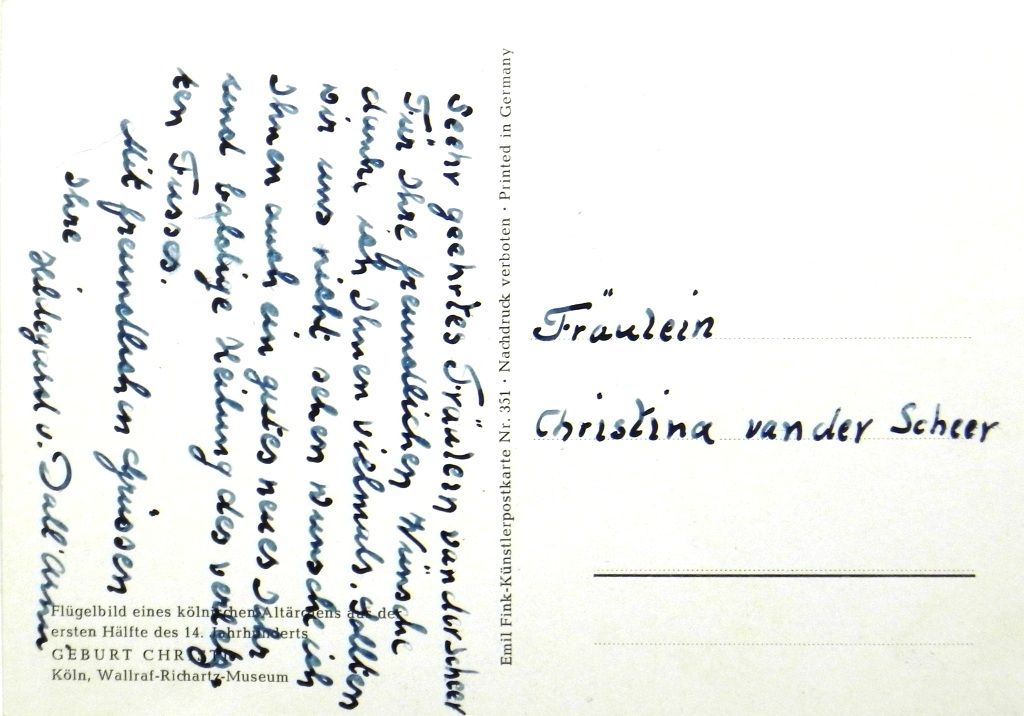 Seehr geehrtes Fräulein van der Scheer
Für Ihre freundlichen Wünsche
danke ich Ihnen vielmals. Sollten
wir uns nicht sehen wünsche ich
Ihnen auch ein gutes neues Jahr
und baldige Heilung des verletz-
ten Fusses.
Mit freundlichen Grüssen
Ihre
Hildegund v.
Flügelbild eines kölnischen Altärchens aus der
ersten Hälfte des 14. Jahrhunderts
GEBURT CHRISTI
Köln, Wallraf-Richartz-Museum
Emil Fink-Künstlerpostkarte Nr. 351 · Nachdruck verboten · Printed in Germany
Fräulein
Christina van der Scheer